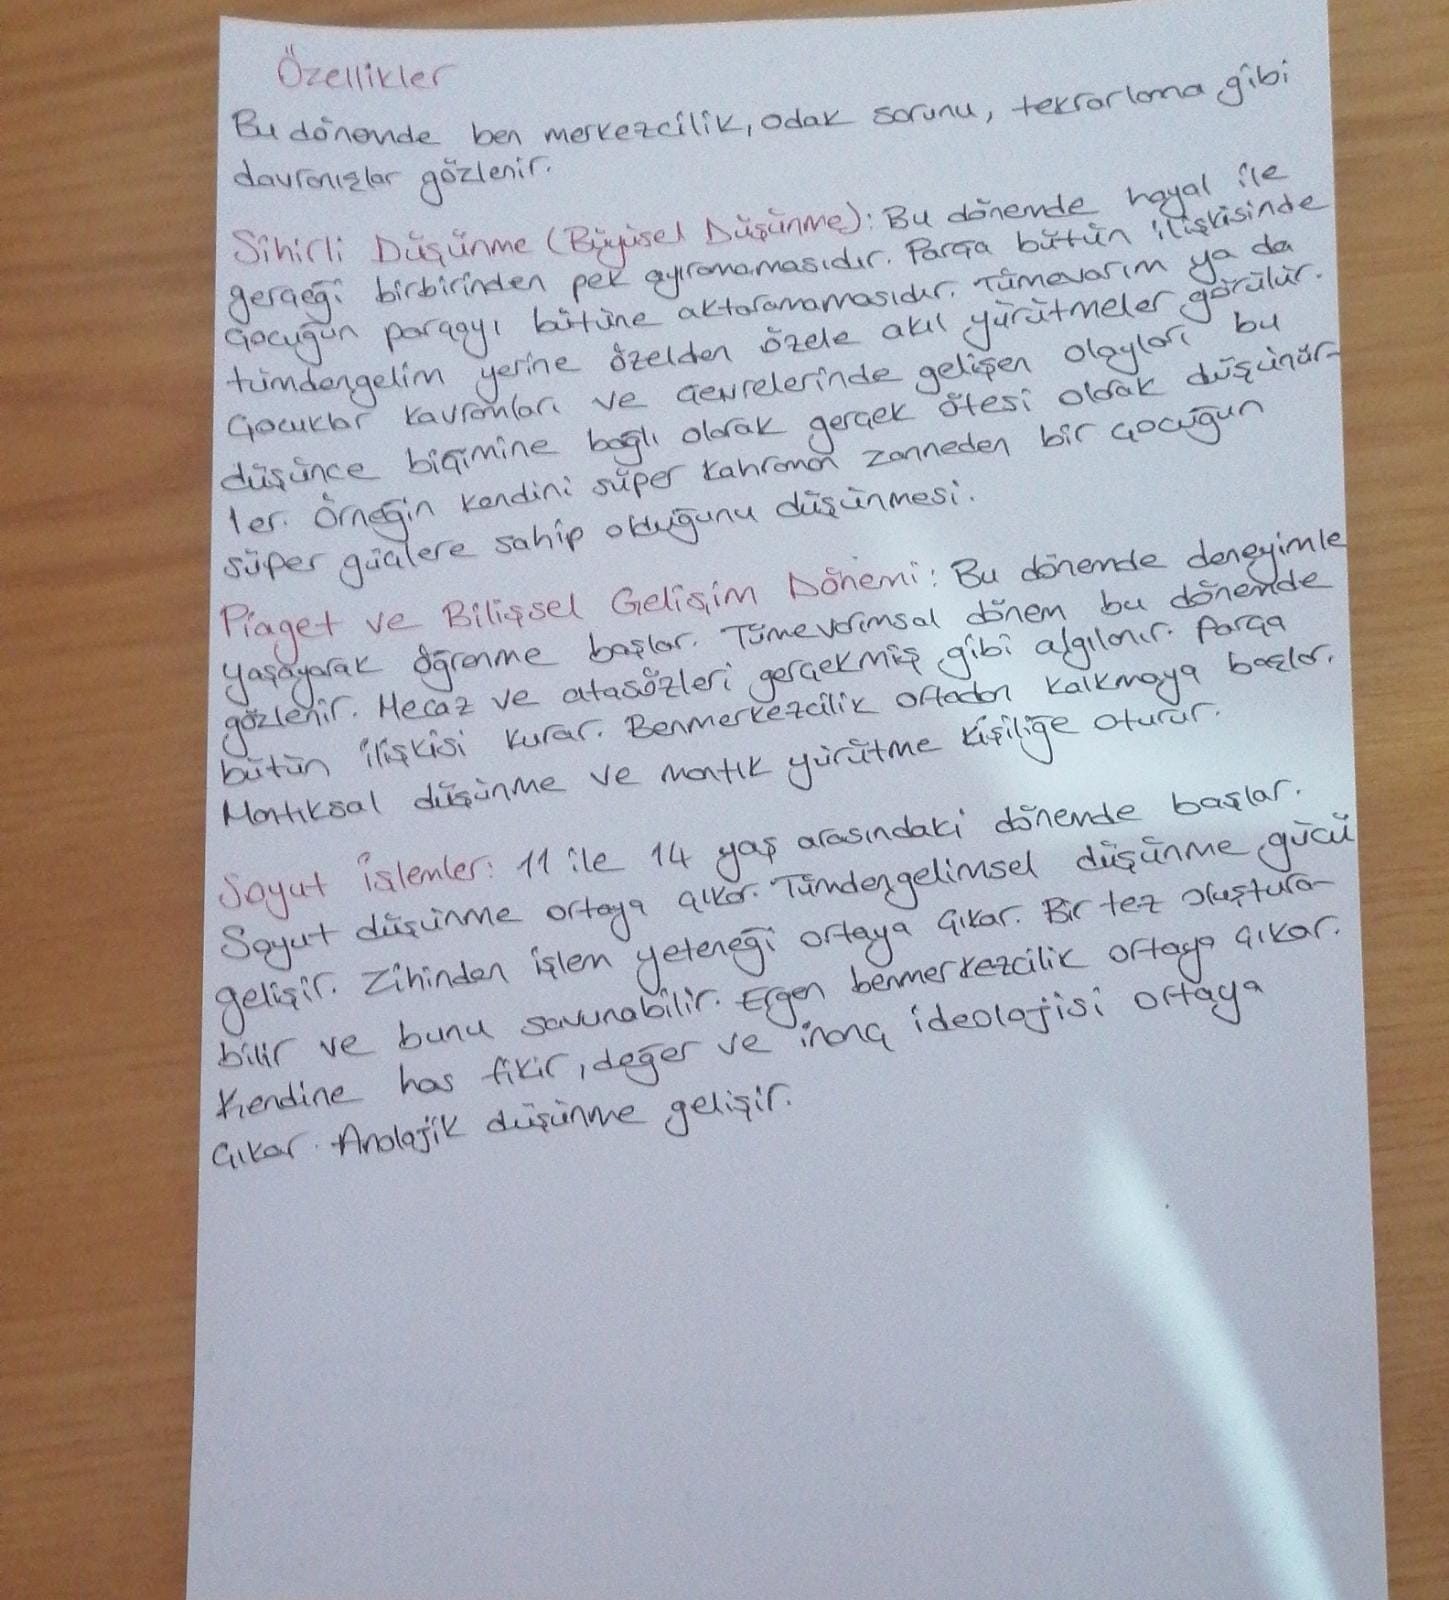 Özellikler
Bu dönemde ben merkezcilik, odak sorunu, tekrarlama gibi
davranışlar gözlenir.
Sihirli Düşünme (Büyüsel Düşünme): Bu dönemde hayal ile
gerçeği birbirinden pek ayıramamasıdır. Parça bütün ilişkisinde
çocuğun parçayı bütüne aktaramamasıdır. Tümevarım ya da
tümdengelim yerine özelden özele akıl yürütmeler görülür.
Çocuklar kavramları ve çevrelerinde gelişen olayları bu
düşünce biçimine bağlı olarak gerçek ötesi olarak düşünür-
ler. Örneğin kendini süper kahraman zanneden bir çocuğun
süper güçlere sahip olduğunu düşünmesi.
Piaget ve Bilişsel Gelişim Dönemi: Bu dönemde deneyimle
yaşayarak öğrenme başlar. Tümevarımsal dönem bu dönemde
gözlenir. Mecaz ve atasözleri gerçekmiş gibi algılanır. Parça
bütün ilişkisi kurar. Benmerkezcilik ortadan kalkmaya başlar.
Mantıksal düşünme ve mantık yürütme kişiliğe oturur.
Soyut İşlemler: 11 ile 14 yaş arasındaki dönemde başlar.
Soyut düşünme ortaya çıkar. Tümdengelimsel düşünme gücü
gelişir. Zihinden işlem yeteneği ortaya çıkar. Bir tez oluştura-
bilir ve bunu savunabilir. Ergen benmerkezcilik ortaya çıkar.
Kendine has fikir, değer ve inanç ideolojisi ortaya
çıkar. Analojik düşünme gelişir.